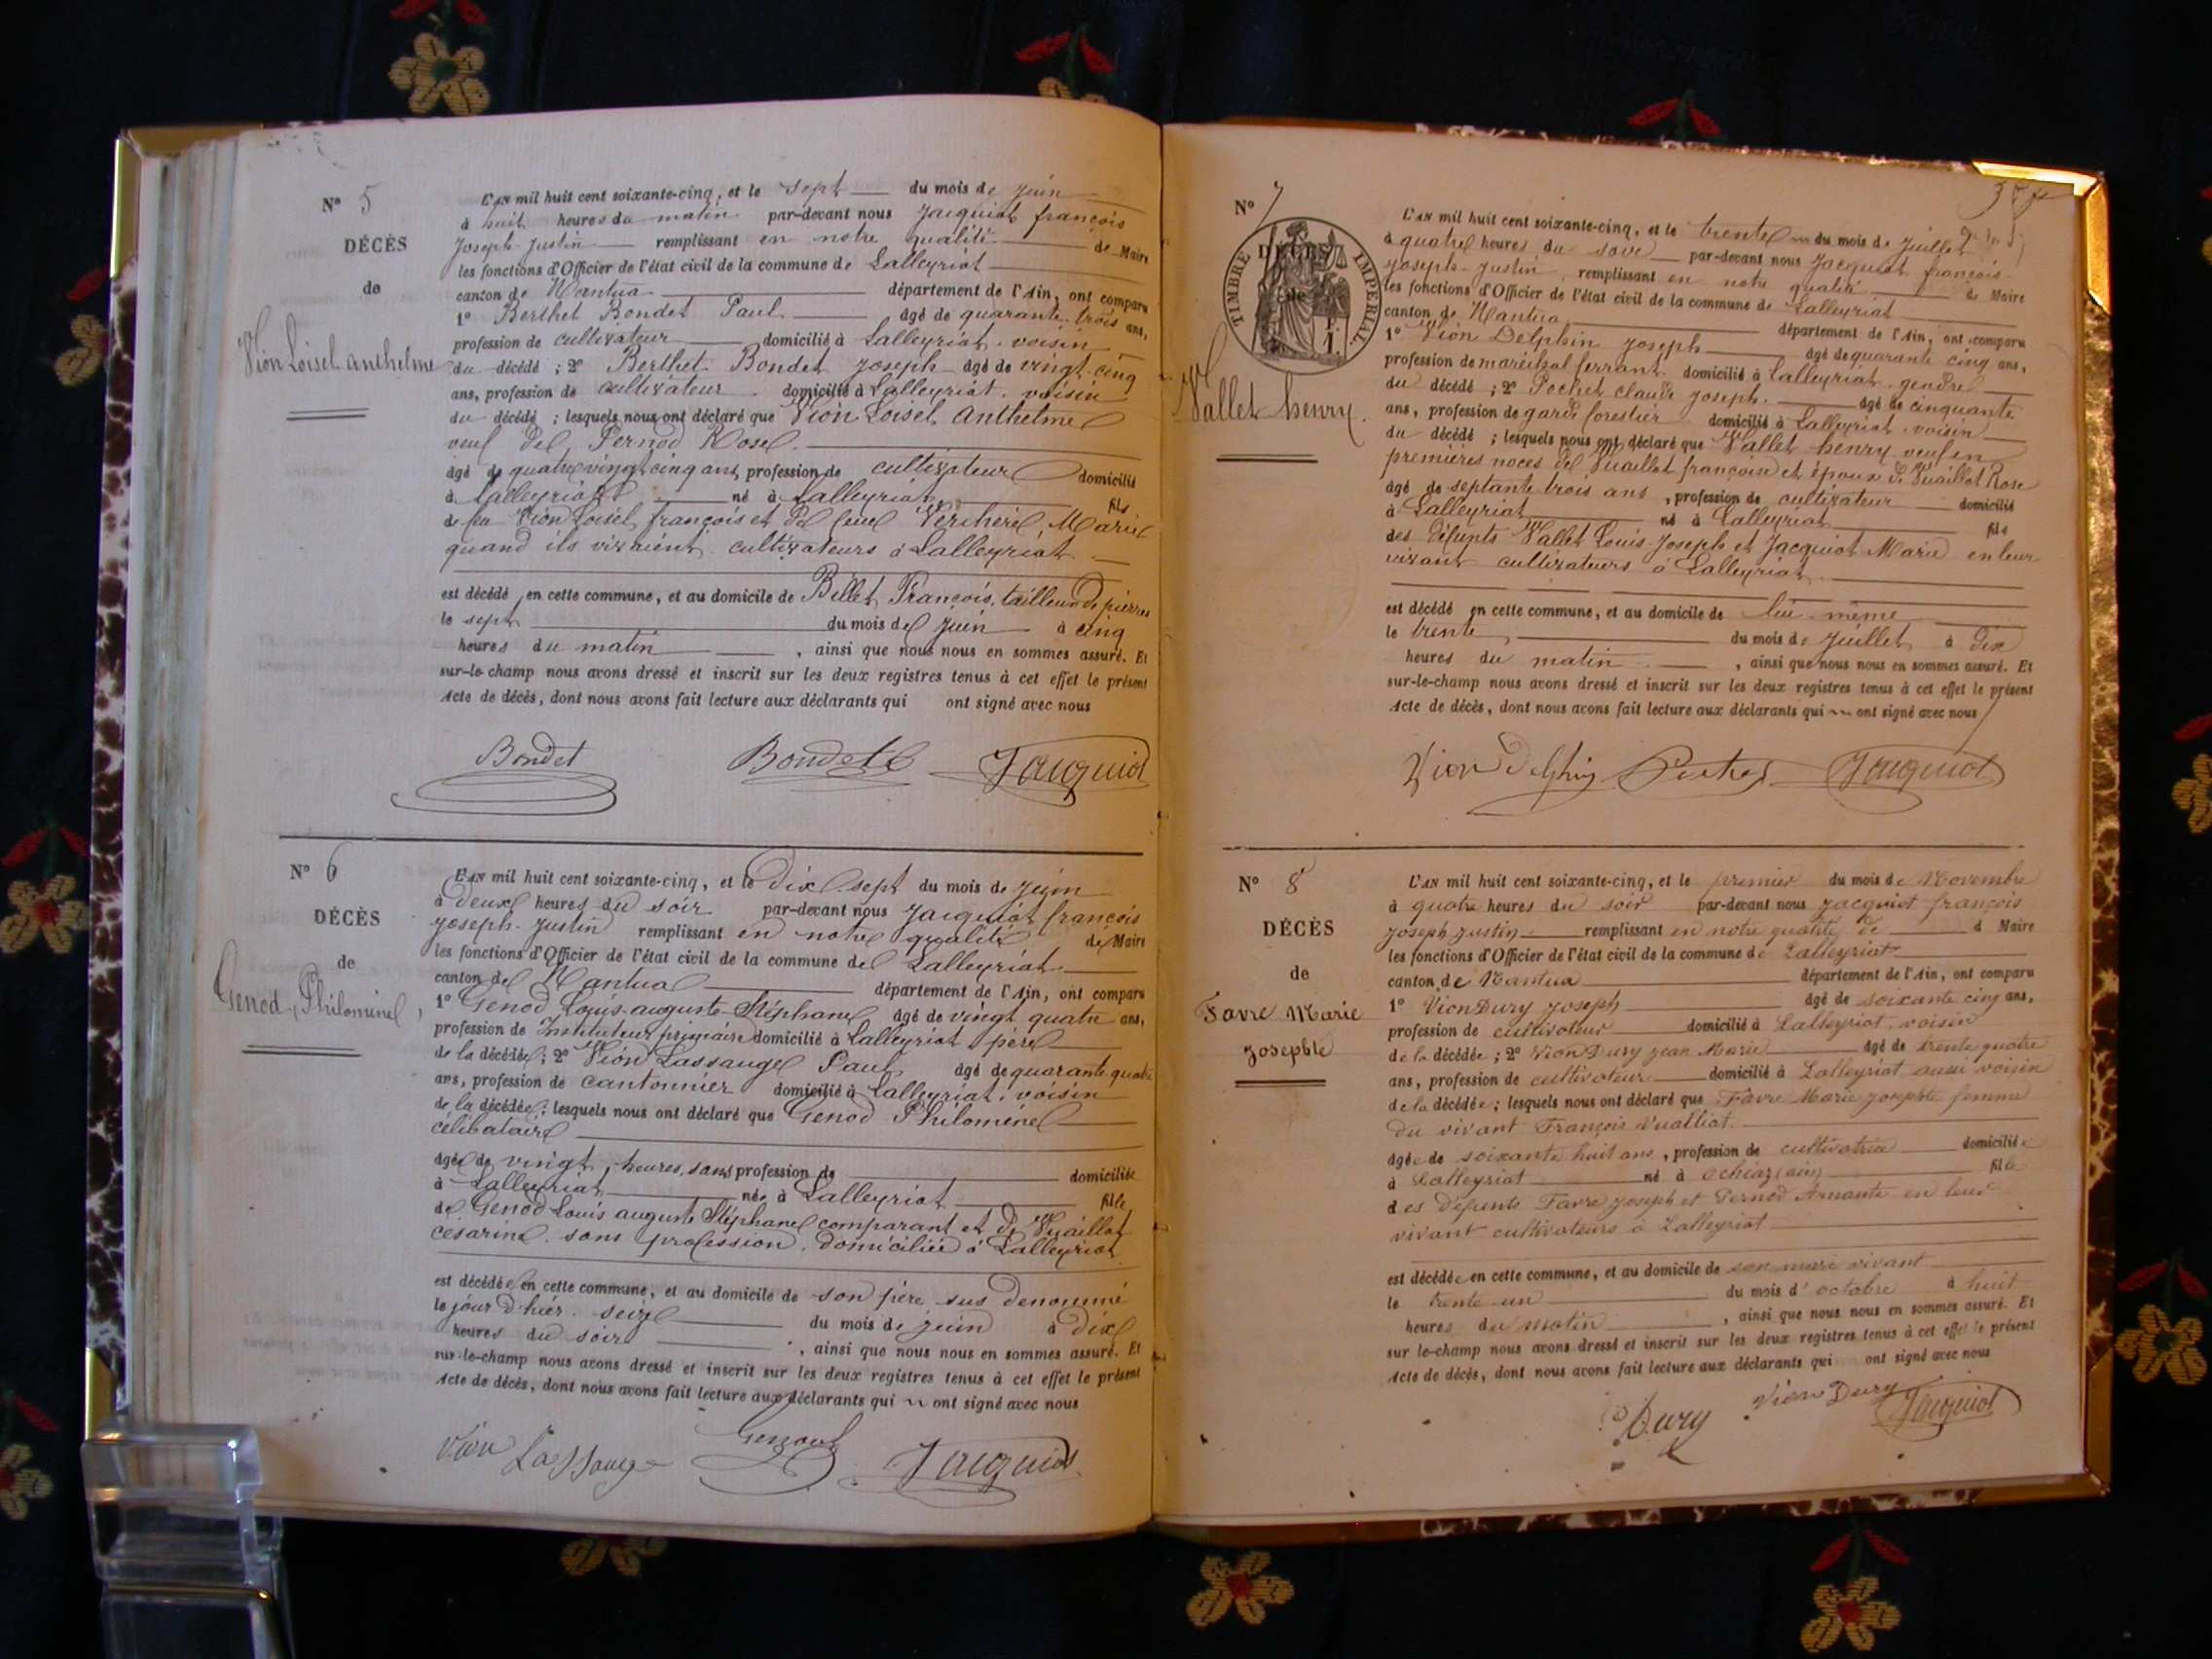 N° 5
DÉCÈS
de
Vion Loisel anthelme
L'AN mil huit cent soixante-cinq, et le sept du mois de juin
à huit heures du matin par-devant nous Jacquiot françois
joseph justin remplissant en notre qualité de Maire
les fonctions d'Officier de l'état civil de la commune de Lalleyriat
canton de Nantua département de l'Ain, ont comparu
1° Berthet Bondet Paul âgé de quarante-trois ans,
profession de cultivateur domicilié à Lalleyriat, voisin
du décédé ; 2° Berthet Bondet joseph âgé de vingt-cinq
ans, profession de cultivateur domicilié à Lalleyriat, voisin
du décédé ; lesquels nous ont déclaré que Vion Loisel Anthelme
veuf de Pernod Rose
âgé de quatre vingt cinq ans, profession de cultivateur domicilié
à Lalleyriat né à Lalleyriat fils
de feu Vion Loisel françois et de feue Marie
quand ils vivaient cultivateurs à Lalleyriat
est décédé en cette commune, et au domicile de Billet François, tailleur de pierres
le sept du mois de juin à cinq
heures du matin , ainsi que nous nous en sommes assuré. Et
sur-le-champ nous avons dressé et inscrit sur les deux registres tenus à cet effet le présent
Acte de décès, dont nous avons fait lecture aux déclarants qui ont signé avec nous
Bondet Bondet Jacquiot
N° 6
DÉCÈS
de
Genod, Philomène
L'AN mil huit cent soixante-cinq, et le Dix-sept du mois de juin
à deux heures du soir par-devant nous Jacquiot françois
joseph-justin remplissant en notre qualité de Maire
les fonctions d'Officier de l'état civil de la commune de Lalleyriat
canton de Nantua département de l'Ain, ont comparu
1° Genod Louis-auguste-Stéphane âgé de vingt quatre ans,
profession de Instituteur primaire domicilié à Lalleyriat, père
de la décédée ; 2° Vion Lassauge Paul âgé de quarante quatre
ans, profession de cantonnier domicilié à Lalleyriat, voisin
de la décédée ; lesquels nous ont déclaré que Genod Philomène
célibataire
âgée de vingt heures, sans profession de domiciliée
à Lalleyriat née à Lalleyriat fille
de Genod Louis auguste Stéphane comparant et de Vuaillat
césarine sans profession, domiciliée à Lalleyriat
est décédée en cette commune, et au domicile de son père sus denommé
le jour d'hier seize du mois de juin à dix
heures du soir , ainsi que nous nous en sommes assuré. Et
sur-le-champ nous avons dressé et inscrit sur les deux registres tenus à cet effet le présent
Acte de décès, dont nous avons fait lecture aux déclarants qui ont signé avec nous
Vion Lassauge Genod Jacquiot
N° 7
DÉCÈS
de
TIMBRE IMPÉRIAL
Vallet henry
L'AN mil huit cent soixante-cinq, et le trente du mois de juillet
à quatre heures du soir par-devant nous Jacquiot françois
joseph-justin remplissant en notre qualité de Maire
les fonctions d'Officier de l'état civil de la commune de Lalleyriat
canton de Nantua département de l'Ain, ont comparu
1° Vion Delphin joseph âgé de quarante cinq ans,
profession de maréchal ferrant domicilié à Lalleyriat, gendre
du décédé ; 2° Pochet claude joseph âgé de cinquante
ans, profession de garde forestier domicilié à Lalleyriat, voisin
du décédé ; lesquels nous ont déclaré que Vallet henry veuf en
premières noces de Vuaillat françoise et époux de Vuaillat Rose
âgé de septante trois ans, profession de cultivateur domicilié
à Lalleyriat né à Lalleyriat fils
des défunts Vallet Louis-Joseph et Jacquiot Marie en leur
vivant cultivateurs à Lalleyriat
est décédé en cette commune, et au domicile de lui-même
le trente du mois de juillet à dix
heures du matin , ainsi que nous nous en sommes assuré. Et
sur-le-champ nous avons dressé et inscrit sur les deux registres tenus à cet effet le présent
Acte de décès, dont nous avons fait lecture aux déclarants qui ont signé avec nous
Vion Delphin Jacquiot
N° 8
DÉCÈS
de
Favre Marie
Josephte
L'AN mil huit cent soixante-cinq, et le premier du mois de Novembre
à quatre heures du soir par-devant nous Jacquiot françois
joseph justin remplissant en notre qualité de d Maire
les fonctions d'Officier de l'état civil de la commune de Lalleyriat
canton de Nantua département de l'Ain, ont comparu
1° Vion Dury joseph âgé de soixante cinq ans,
profession de cultivateur domicilié à Lalleyriat, voisin
de la décédée ; 2° Vion Dury jean Marie âgé de trente quatre
ans, profession de cultivateur domicilié à Lalleyriat aussi voisin
de la décédée ; lesquels nous ont déclaré que Favre Marie josephte femme
du vivant François Vualliat
âgée de soixante huit ans, profession de cultivatrice domiciliée
à Lalleyriat né à Ochiaz (ain) fille
des défunts Favre joseph et Pernod Amante en leur
vivant cultivateurs à Lalleyriat
est décédée en cette commune, et au domicile de son mari vivant
le trente un du mois d'octobre à huit
heures du matin , ainsi que nous nous en sommes assuré. Et
sur le-champ nous avons dressé et inscrit sur les deux registres tenus à cet effet le présent
Acte de décès, dont nous avons fait lecture aux déclarants qui ont signé avec nous
Dury Vion Dury Jacquiot